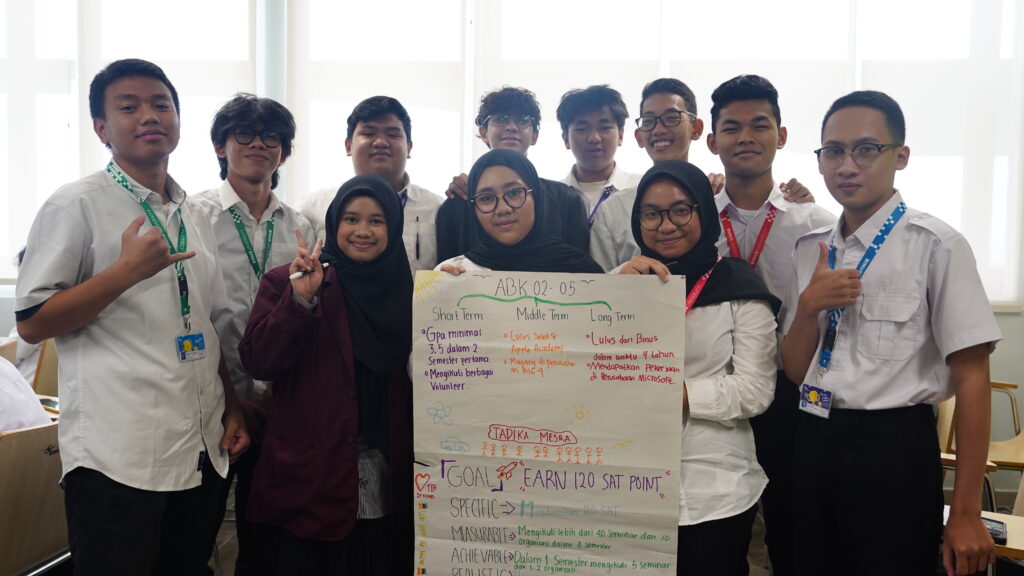 ABK 02-05
Short Term
Middle Term
Long Term
Gpa minimal
3.5 dalam 2
Semester pertama.
Mengikuti berbagai
Volunteer.
Lulus Seleksi
Apple Academy
Magang di perusaha-
an BIG 4
Lulus dari Binus
dalam waktu 4 tahun
Mendapatkan pekerjaan
di Perusahaan Microsoft.
TADIKA MESRA
GOAL "EARN 120 SAT POINT"
SPECIFIC Mendapatkan 120 SAT
MEASURABLE Mengikuti lebih dari 40 Seminar dan 10
organisasi dalam 8 semester
ACHIEVABLE Dalam 1 Semester mengikuti 5 seminar
dan 1-2 organisasi.
REALISTIC